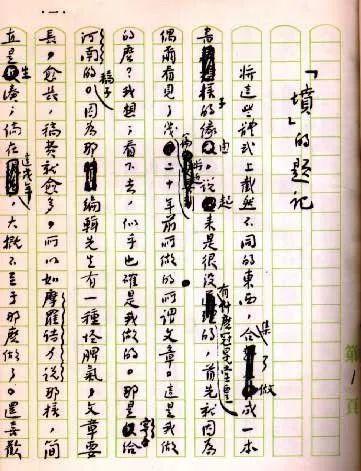 「墳」的題記
將這些體式上截然不同的東西,集合了做成一本
書樣子的緣由,說起來是很没有什麽冠冕堂皇的。首先就因為
偶爾看見了幾篇將近二十年前所做的所謂文章。這是我做
的麽?我想;看下去,似乎也確是我做的。那是寄給
河南的稿子;因為那編輯先生有一種怪脾氣,文章要
長,愈長,稿費就愈多。所以如摩羅詩力說那樣,簡
直是生湊;倘在這幾年,大概不至于那麽做了。還喜歡
第1頁